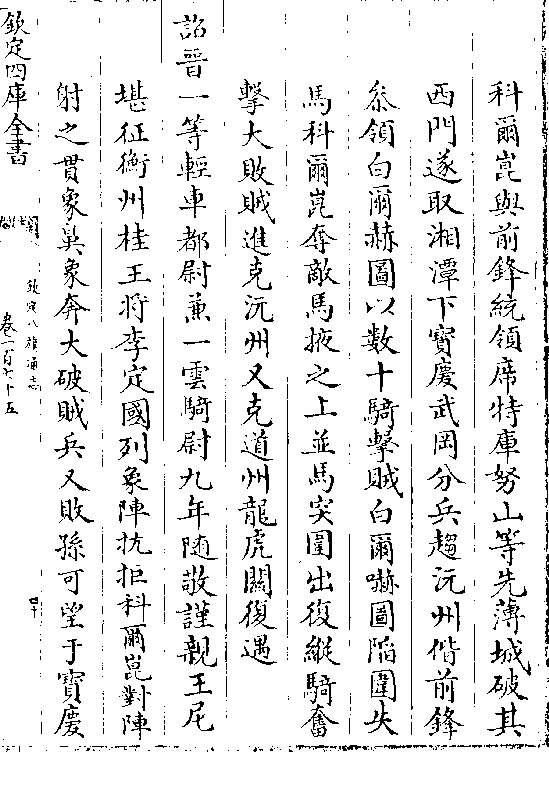 科爾崑與前鋒統領席特庫努山等先薄城破其
西門遂取湘潭下寶慶武岡分兵趨沅州偕前鋒
叅領白爾赫圖以數十騎擊賊白爾嚇圖陷圍失
馬科爾崑奪敵馬掖之上並馬突圍出復縱騎奮
擊大敗賊進克沅州又克道州龍虎關復遇
詔晉一等輕車都尉兼一雲騎尉九年随敬謹親王尼
堪征衡州桂王将李定國列象陣抗拒科爾崑對陣
射之貫象鼻象奔大破賊兵又敗孫可望于寶慶
欽定四庫全書
欽定八旗通志
卷一百七十五